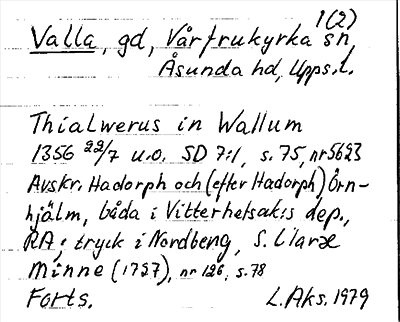 1(2)
Valla, gd, Vårfrukyrka sn,
Åsunda hd, Upps.l.
Thialwerus in Wallum
1356 22/7 u.o. SD 7:1, s.75, nr5623
Avskr. Hadorph och (efter Hadorph) Örn-
hjälm, båda i Vitterhetsak:s dep.,
RA; tryck i Nordberg, S. Claræ
Minne (1727), nr 126, s.78
Forts. L.Aks. 1979